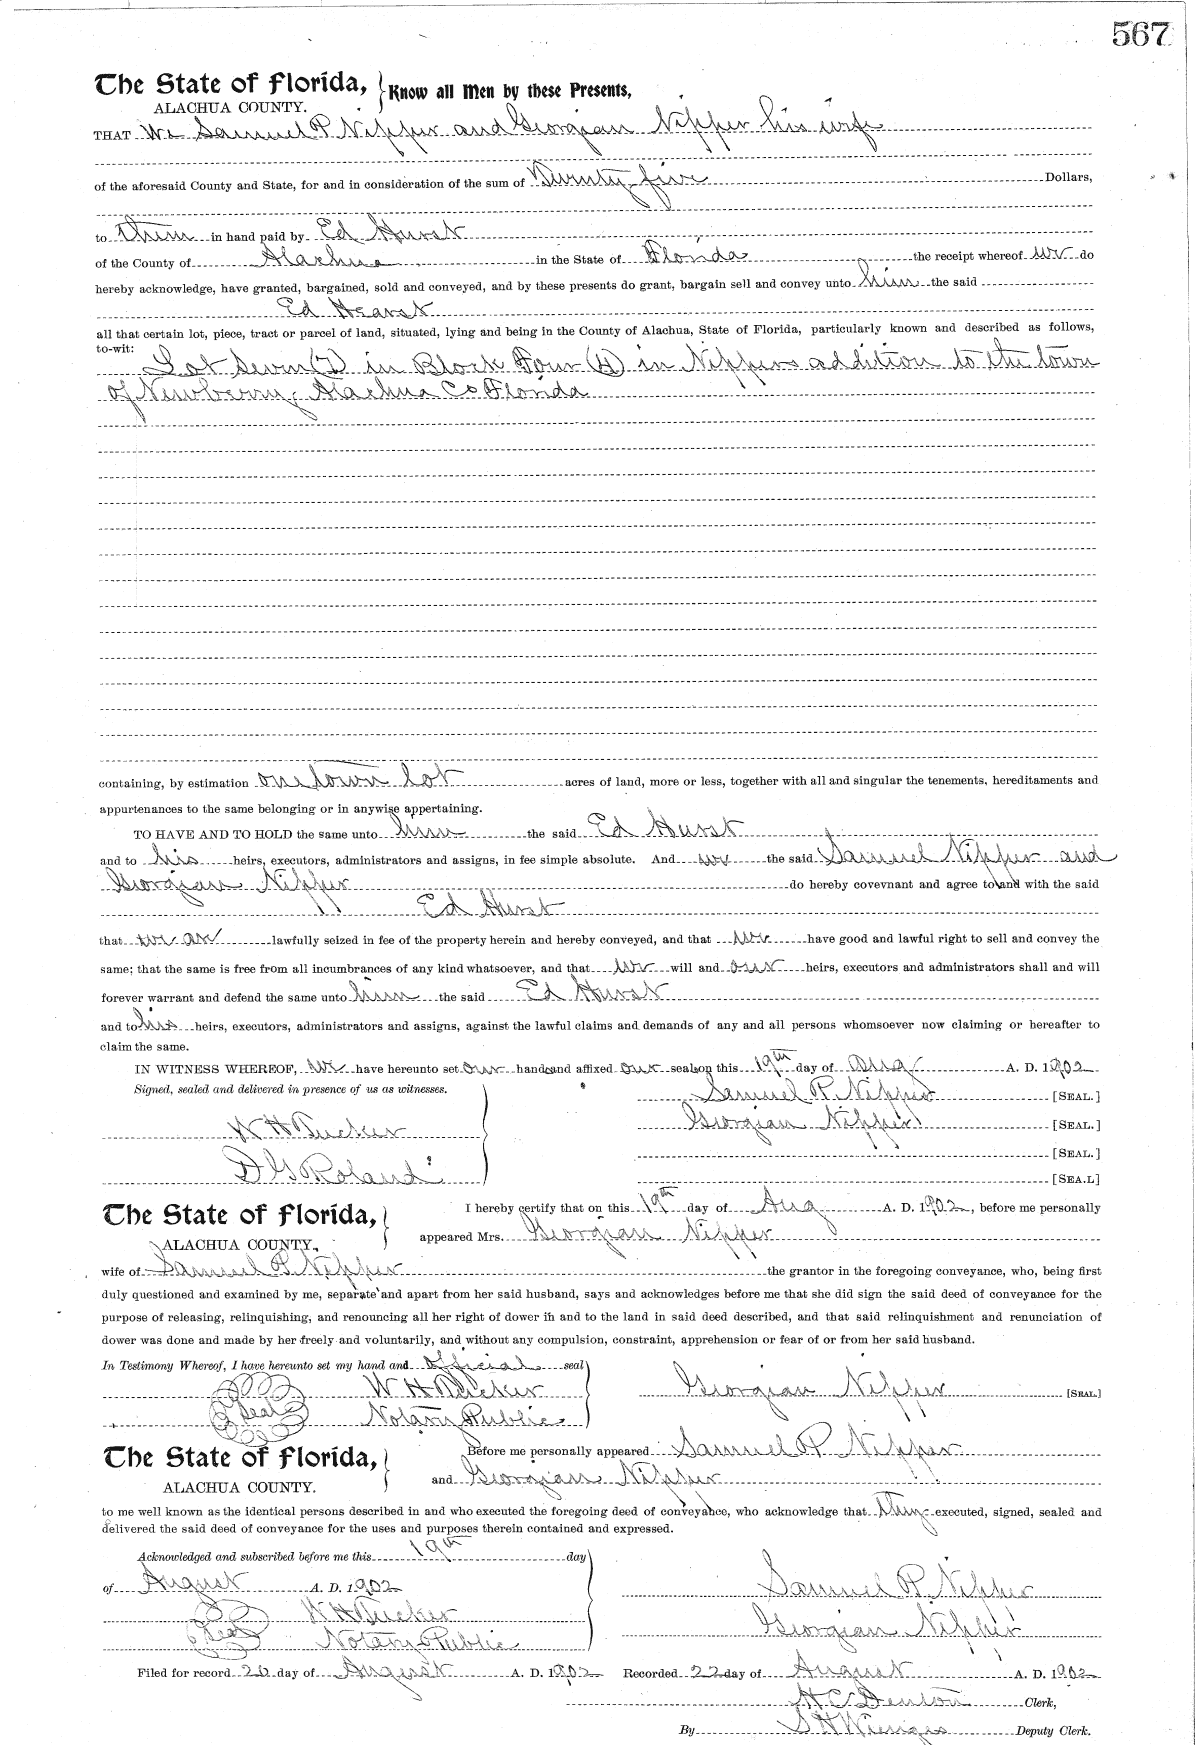 567
The State of Florida, Know all Men by these Presents,
ALACHUA COUNTY.
THAT We Samuel P. Nipper and Georgian Nipper his wife
of the aforesaid County and State, for and in consideration of the sum of Twenty five Dollars,
to them in hand paid by Ed Hurst
of the County of Alachua in the State of Florida the receipt whereof we do
hereby acknowledge, have granted, bargained, sold and conveyed, and by these presents do grant, bargain sell and convey unto him the said
Ed Hearst
all that certain lot, piece, tract or parcel of land, situated, lying and being in the County of Alachua, State of Florida, particularly known and described as follows,
to-wit: Lot Seven (7) in Block Four (4) in Nippers addition to the town
of Newberry, Alachua Co Florida
containing, by estimation one town lot acres of land, more or less, together with all and singular the tenements, hereditaments and
appurtenances to the same belonging or in anywise appertaining.
TO HAVE AND TO HOLD the same unto him the said Ed Hurst
and to his heirs, executors, administrators and assigns, in fee simple absolute. And we the said Samuel Nipper and
Georgian Nipper do hereby covevnant and agree to and with the said
Ed Hurst
that we are lawfully seized in fee of the property herein and hereby conveyed, and that we have good and lawful right to sell and convey the
same; that the same is free from all incumbrances of any kind whatsoever, and that we will and our heirs, executors and administrators shall and will
forever warrant and defend the same unto him the said Ed Hurst
and to his heirs, executors, administrators and assigns, against the lawful claims and demands of any and all persons whomsoever now claiming or hereafter to
claim the same.
IN WITNESS WHEREOF, we have hereunto set our hands and affixed our seals on this 19th day of Aug A. D. 1902
Signed, sealed and delivered in presence of us as witnesses. Samuel P. Nipper [SEAL.]
W H Tucker Georgian Nipper [SEAL.]
[SEAL.]
D G Roland [SEA.L]
The State of Florida, I hereby certify that on this 19th day of Aug A. D. 1902, before me personally
ALACHUA COUNTY. appeared Mrs. Georgian Nipper
wife of Samuel P. Nipper the grantor in the foregoing conveyance, who, being first
duly questioned and examined by me, separate and apart from her said husband, says and acknowledges before me that she did sign the said deed of conveyance for the
purpose of releasing, relinquishing, and renouncing all her right of dower in and to the land in said deed described, and that said relinquishment and renunciation of
dower was done and made by her freely and voluntarily, and without any compulsion, constraint, apprehension or fear of or from her said husband.
In Testimony Whereof, I have hereunto set my hand and official seal
W H Tucker Georgian Nipper [SEAL]
Seal Notary Public
The State of Florida, Before me personally appeared Samuel P Nipper
ALACHUA COUNTY. and Georgian Nipper
to me well known as the identical persons described in and who executed the foregoing deed of conveyance, who acknowledge that they executed, signed, sealed and
delivered the said deed of conveyance for the uses and purposes therein contained and expressed.
Acknowledged and subscribed before me this 19th day
of August A. D. 1902 Samuel P. Nipper
W H Tucker Georgian Nipper
Seal Notary Public
Filed for record 20 day of August A. D. 1902 Recorded 22 day of August A. D. 1902
H C Denton Clerk,
By S H Wienges Deputy Clerk.